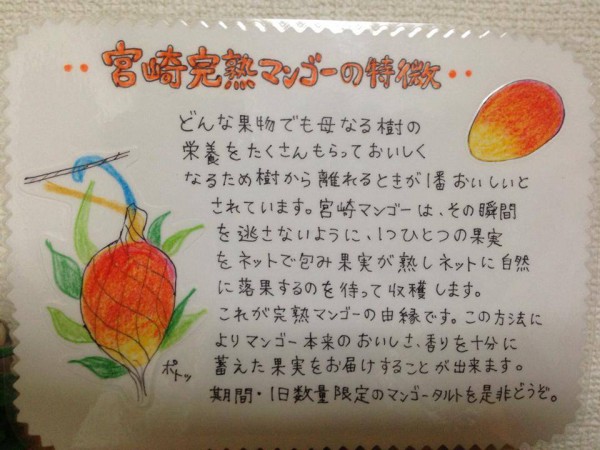 ・・宮崎完熟マンゴーの特徴・・
どんな果物でも母なる樹の
栄養をたくさんもらっておいしく
なるため樹から離れるときが1番おいしいと
されています。宮崎マンゴーは、その瞬間
を逃さないように、1つひとつの果実
をネットで包み果実が熟しネットに自然
に落果するのを待って収穫します。
これが完熟マンゴーの由縁です。この方法に
よりマンゴー本来のおいしさ、香りを十分に
蓄えた果実をお届けすることが出来ます。
期間・1日数量限定のマンゴータルトを是非どうぞ。
ポトッ